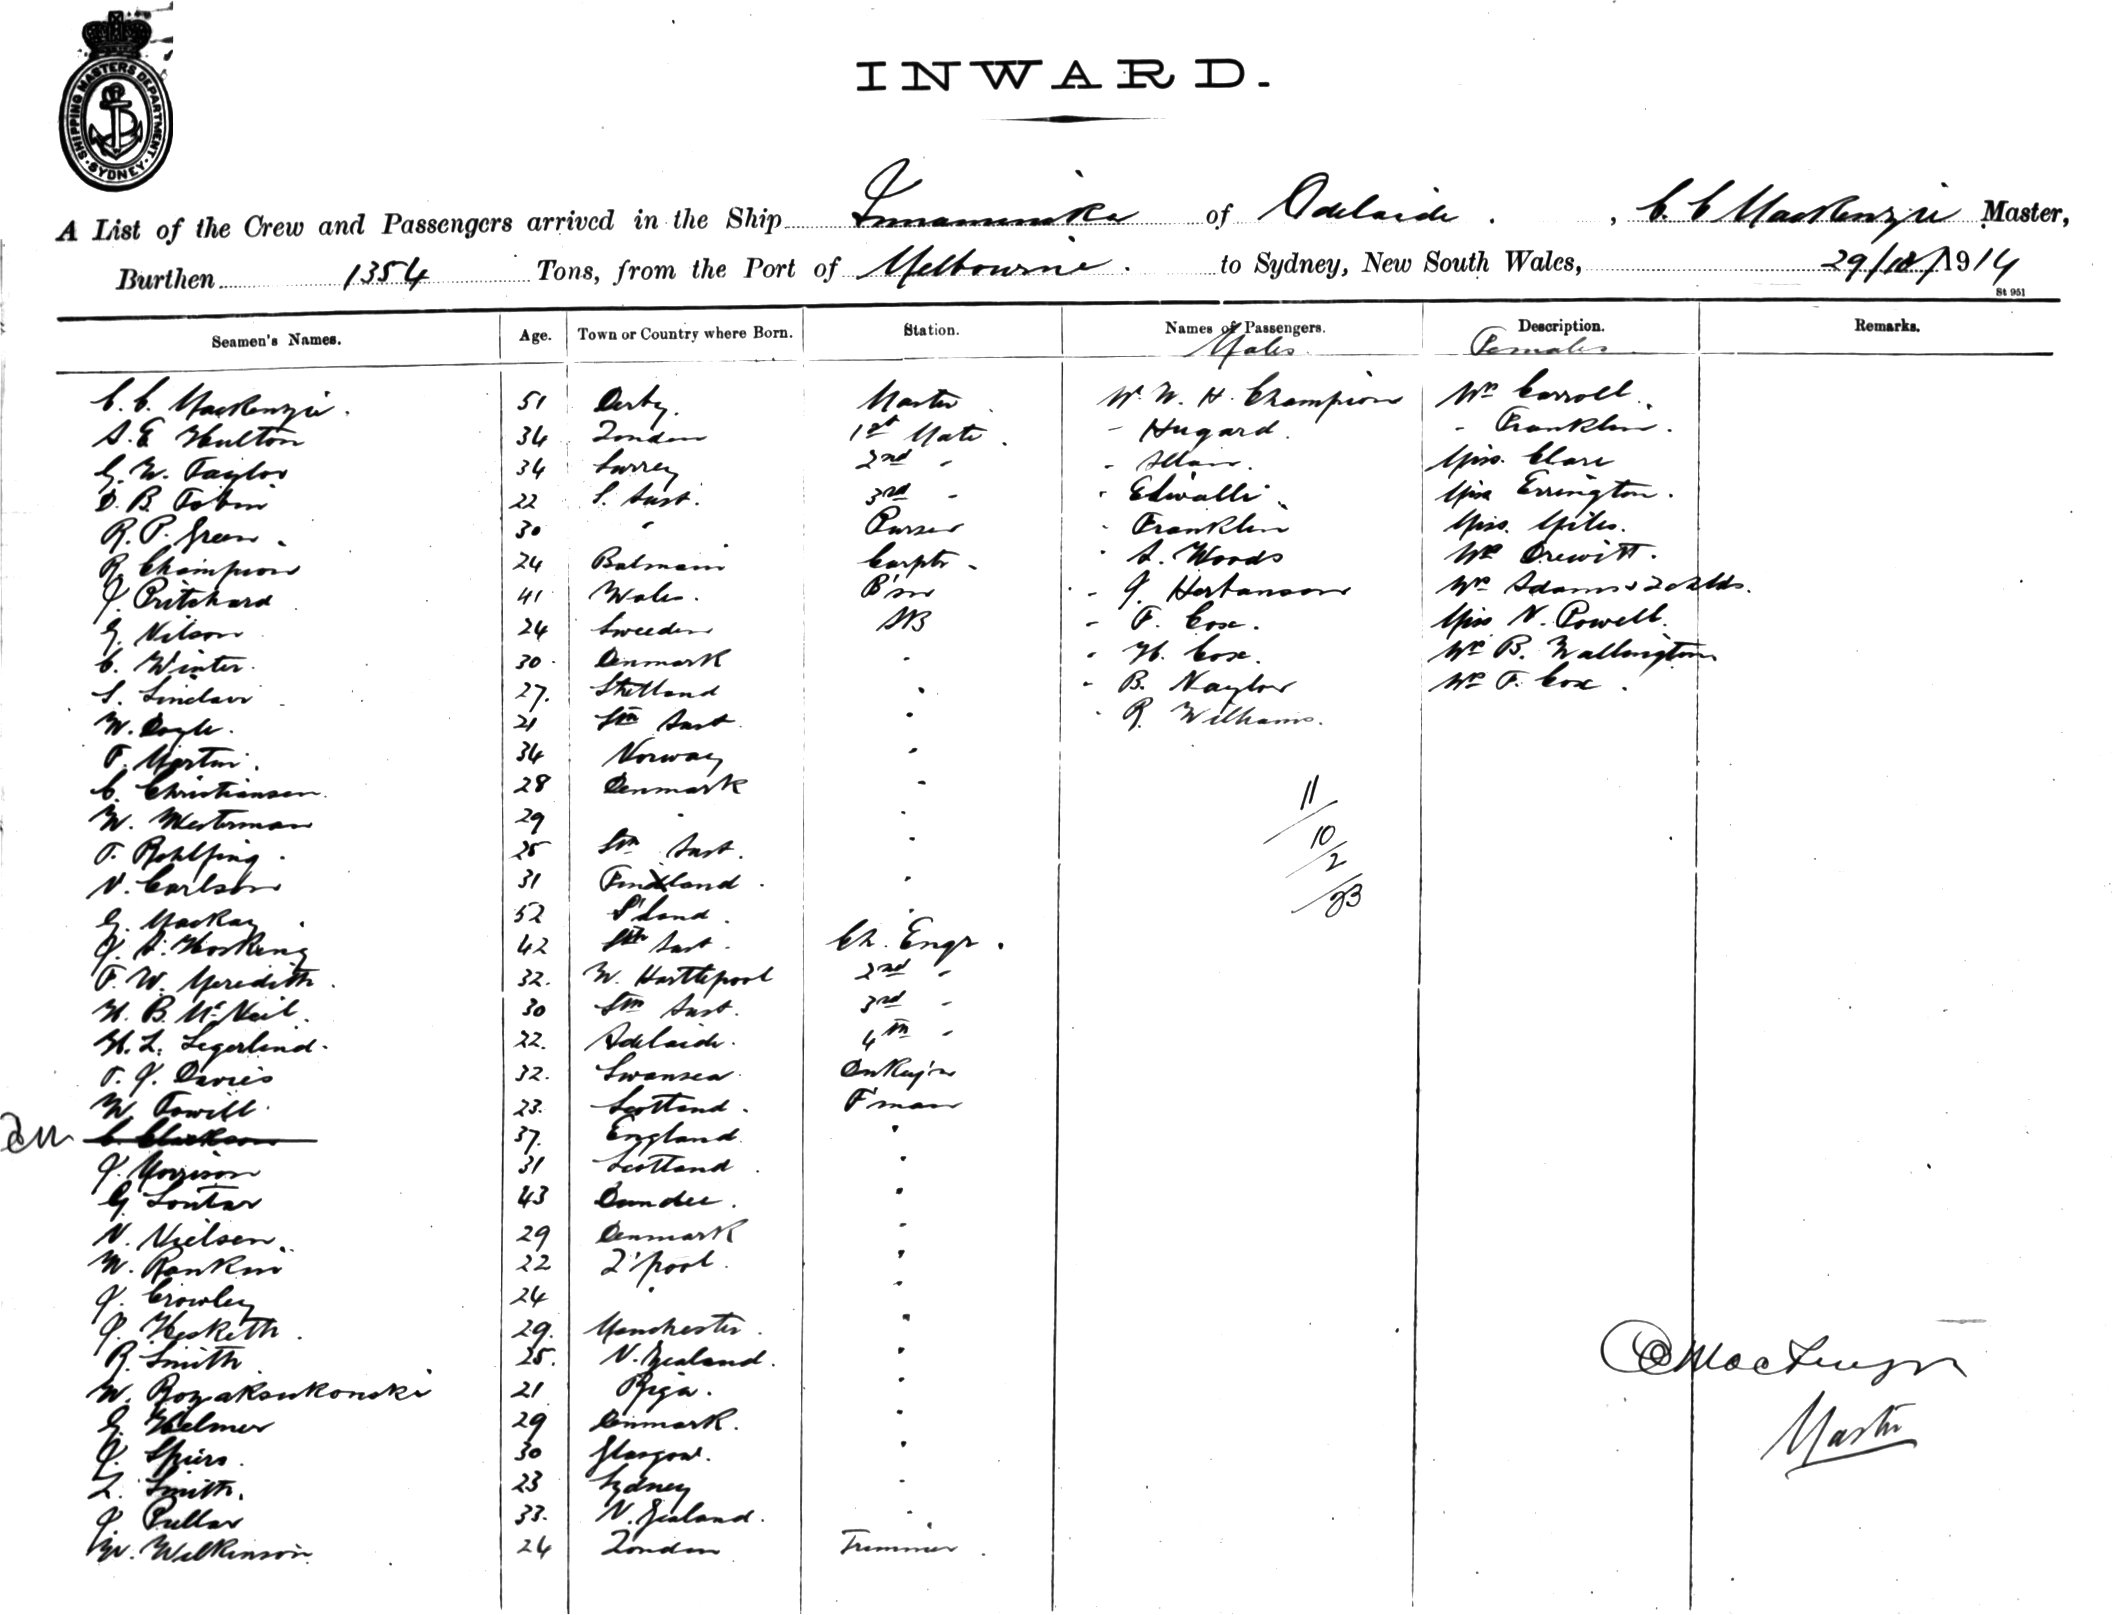 SHIPPING MASTERS DEPARTMENT · SYDNEY ·
INWARD.
A List of the Crew and Passengers arrived in the Ship Innamincka of Adelaide . , C. C MacKenzie Master,
Burthen 1354 Tons, from the Port of Melbourne . to Sydney, New South Wales, 29/10/1914
St 951
Seamen's Names. Age. Town or Country where Born. Station. Names of Passengers. Description. Remarks.
Males Females
C. C. MacKenzie . 51 Derby. Master Mr W. H. Champion Mrs Carroll.
A. E Hulton 34 London 1st Mate . - Hugard. - Franklin.
G. W. Taylor 34 Surrey 2nd " - Allan. Miss. Clare
D. B. Tobin 22 S. Aust. 3rd " " Edwalli. Miss Errington.
R. P. Green . 30 " Purser - Franklin Miss. Miles.
R Champion 24 Balmain Carptr " A. Woods Mrs Drewitt.
J. Pritchard 41 Wales. B'sn - J. Herbanson Mrs Adams & 2 chlds.
G. Nilson 24 Sweden AB - F. Cox. Miss N. Powell.
C. Winter. 30 Denmark " " H. Cox. Mrs B. Wallington
S. Sinclair 27. Shetland " " B. Naylor Mrs F. Cox .
W. Doyle. 21 Sth Aust " " R. Williams.
F. Martin. 34 Norway "
C. Christiansen. 28 Denmark " 11
W. Westerman 29 " "
T. Rohlfing. 25 Sth Aust. " 10
N. Carlson 31 Findland . " 2
G. MacKay . 52 S'land . " /23
J. A. Hosking 42 Sth Aust. Ch. Engr .
F. W. Meredith. 32. W. Hartlepool 2nd "
H. B. McNeil. 30 Sth Aust. 3rd "
H. L. Legerlind. 22. Adelaide. 4th "
T. J. Davies 32. Swansea DnKeym'n
W. Towill. 23. Scotland. F'man
C. Clarkson 37. England "
J. Morrison 31 Scotland . "
G Soutar 43 Dundee . "
N. Nielsen. 29 Denmark "
W. Rankin 22 L'pool. "
J. Crowley 24 " "
J. Hesketh . 29. Manchester. "
R. Smith 25. N. Zealand. "
W. Rozaksukonski 21 Riga. "
G. Helmer 29 Denmark. "
J. Spiers. 30 Glasgow. "
L. Smith. 23 Sydney "
J Pullar 33. N. Zealand. "
W. Wilkinson 24 London Trimmer .
Master